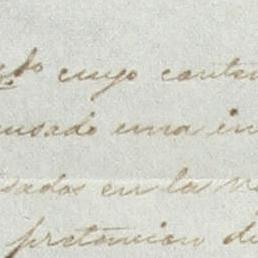 cuyo conten
ensado una in
sados en la n
pretencion de